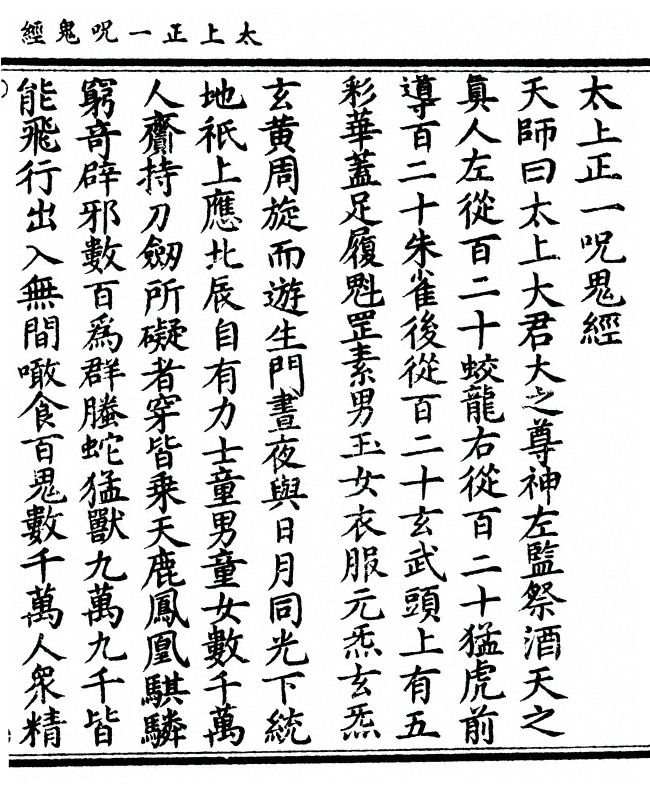 太上正一呪鬼經
太上正一呪鬼經
天師曰太上大君大之尊神左監祭酒天之
眞人左從百二十蛟龍右從百二十猛虎前
導百二十朱雀後從百二十玄武頭上有五
彩華蓋足履魁罡素男玉女衣服元炁玄炁
玄黃周旋而遊生門晝夜與日月同光下統
地祇上應北辰自有力士童男童女數千萬
人齎持刀劒所礙者穿皆乗天鹿鳳凰騏驎
窮奇辟邪數百爲群螣蛇猛獸九萬九千皆
能飛行出入無間噉食百鬼數千萬人衆精